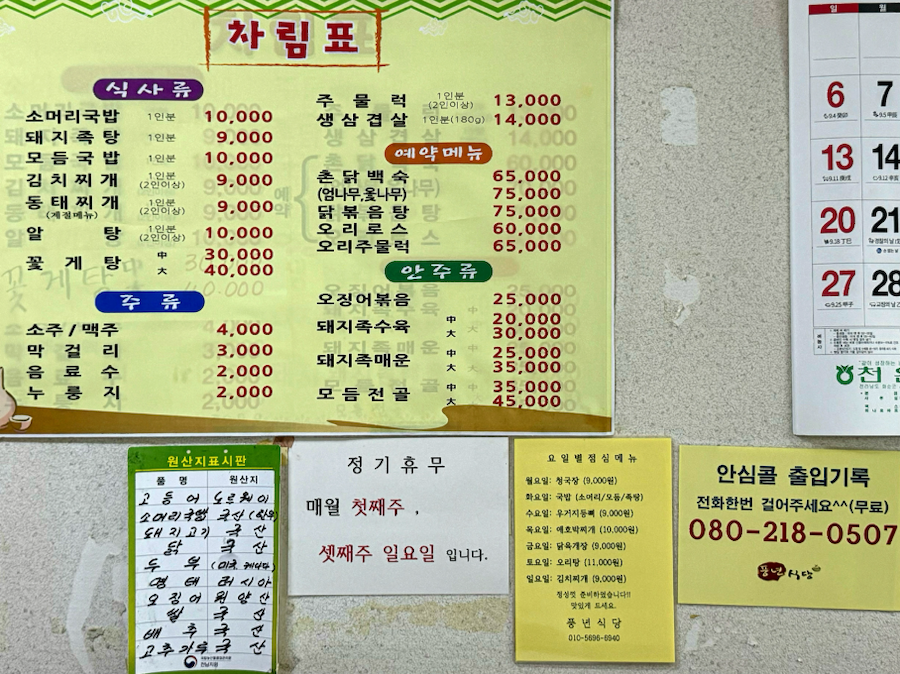 차림표
식사류
소머리국밥 1인분 10,000
돼지족탕 1인분 9,000
모듬국밥 1인분 10,000
김치찌개 1인분 (2인이상) 9,000
동태찌개 (계절메뉴) 1인분 (2인이상) 9,000
알 탕 1인분 (2인이상) 10,000
꽃게탕 中 30,000
大 40,000
주류
소주/맥주 4,000
막걸리 3,000
음료수 2,000
누룽지 2,000
주물럭 1인분 (2인이상) 13,000
생삼겹살 1인분(180g) 14,000
예약메뉴
촌닭백숙 65,000
(엄나무,옻나무) 75,000
닭볶음탕 75,000
오리로스 60,000
오리주물럭 65,000
안주류
오징어볶음 25,000
돼지족수육 中 20,000
大 30,000
돼지족매운 中 25,000
大 35,000
모듬전골 中 35,000
大 45,000
일 월
6 7
13 14
20 21
27 28
천
원산지표시판
품명 원산지
고등어 노르웨이
소머리국밥 국산
돼지고기 국산
닭 국산
두부
명태 러시아
오징어 원양산
쌀 국산
배추 국산
고추가루 국산
정기휴무
매월 첫째주 ,
셋째주 일요일 입니다.
요일별점심메뉴
월요일: 청국장 (9,000원)
화요일: 국밥 (소머리/모듬/족탕)
수요일: 우거지등뼈 (9,000원)
목요일: 애호박찌개 (10,000원)
금요일: 닭육개장 (9,000원)
토요일: 오리탕 (11,000원)
일요일: 김치찌개 (9,000원)
점심껏 준비하였습니다!!
맛있게 드세요.
풍년식당
010-5696-6940
안심콜 출입기록
전화한번 걸어주세요^^(무료)
080-218-0507
풍년식당